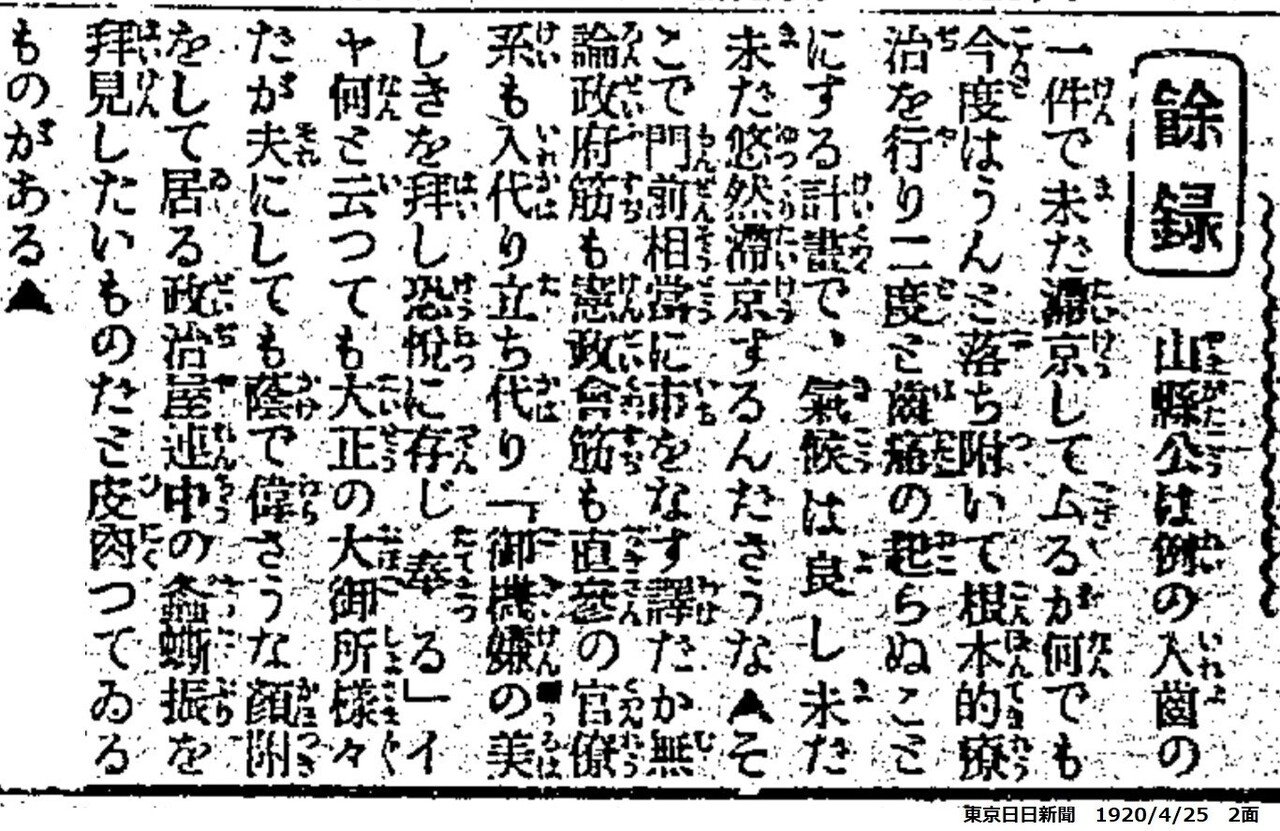 餘録
山縣公は例の入齒の
一件で未た滯京してムるが何でも
今度はうんと落ち附いて根本的療
治を行り二度と齒痛の起らぬこと
にする計畫で、氣候は良し未た
未た悠然滯京するんたさうな▲そ
こで門前相當に市をなす譯たか無
論政府筋も憲政會筋も直參の官僚
系も入代り立ち代り「御機嫌の美
しきを拜し恐悅に存じ奉る」イ
ヤ何と云つても大正の大御所様々
たが夫にしても蔭で偉さうな顔附
をして居る政治屋連中の螽蟖振を
拜見したいものたと皮肉つてゐる
ものがある▲
東京日日新聞　1920/4/25　2面